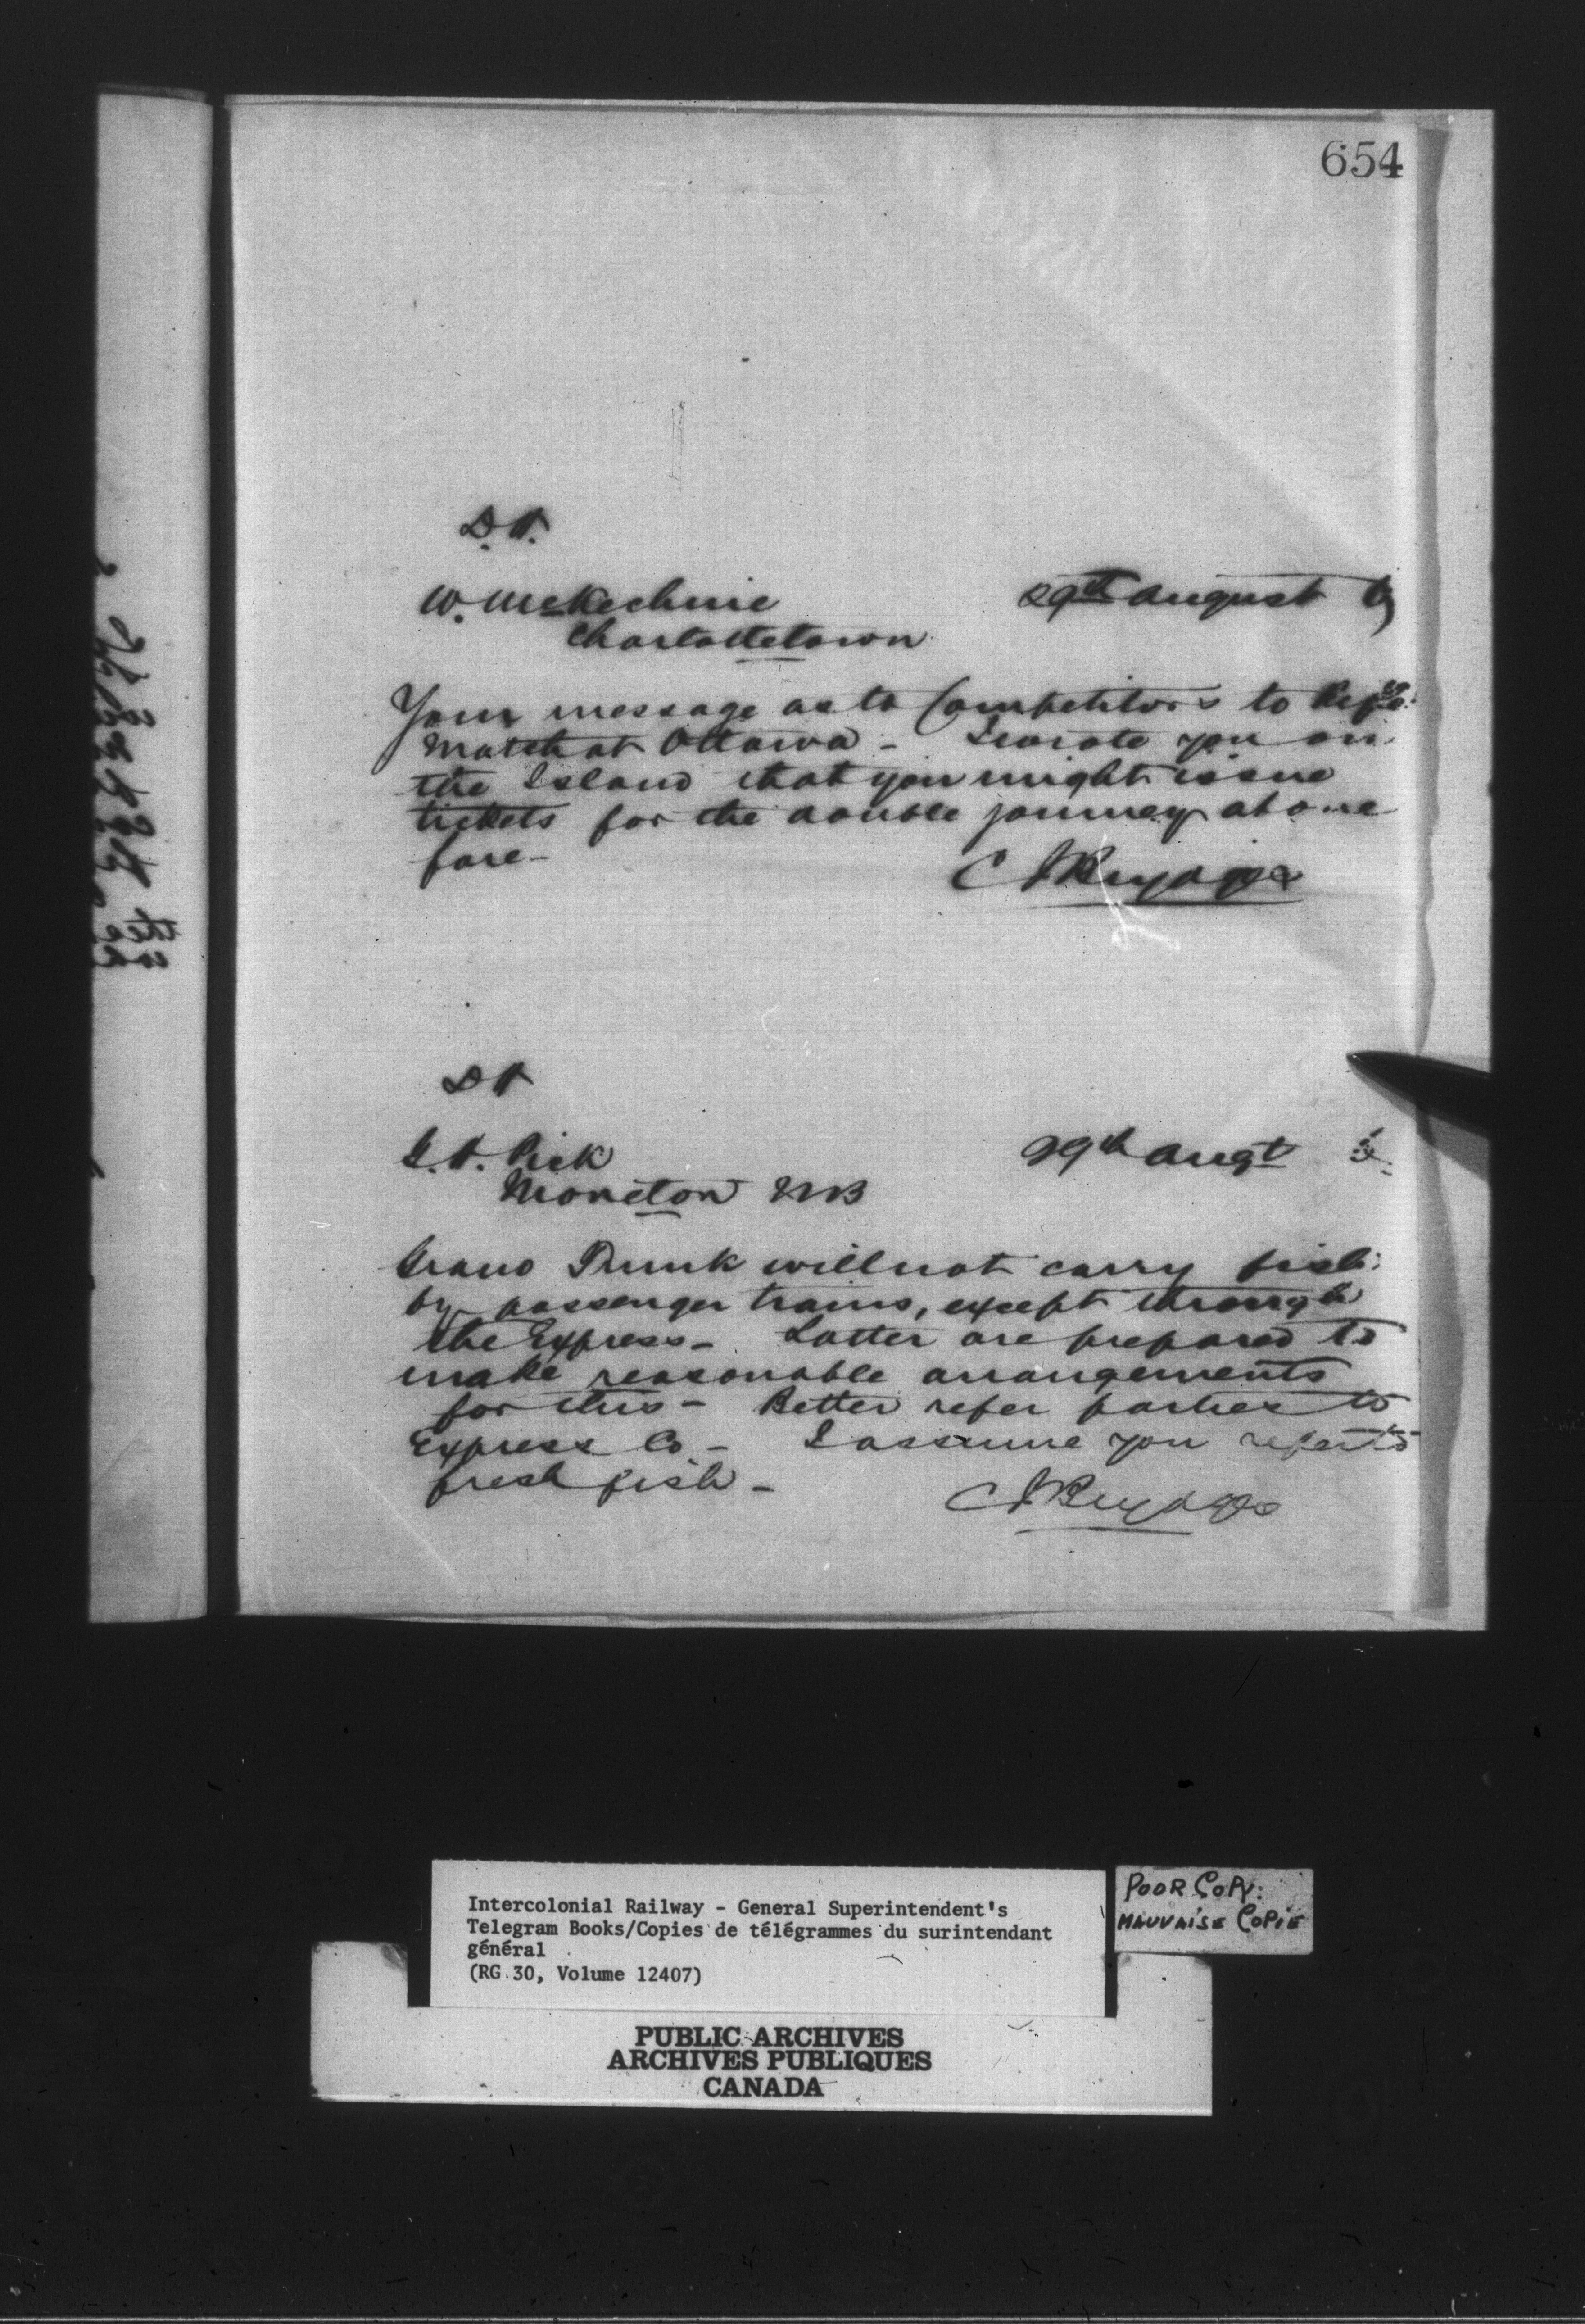 654
D.H.
W. McKechnie 29th August
Charlottetown
Your message as to Competitors to Rifle
Match at Ottawa - I wrote you on
the Island that you might issue
tickets for the double journey at one
fare -
C J Brydges
DH
Pick 29th Augt
Moncton NB
Grand Trunk will not carry fish
by passenger trains, except through
the Express - Latter are prepared to
make reasonable arrangements
for this - Better refer parties to
Express Co - I assume you refer to
fresh fish -
C J Brydges
Intercolonial Railway - General Superintendent's
Telegram Books/Copies de télégrammes du surintendant
général
(RG 30, Volume 12407)
POOR COPY.
MAUVAISE COPIE
PUBLIC ARCHIVES
ARCHIVES PUBLIQUES
CANADA